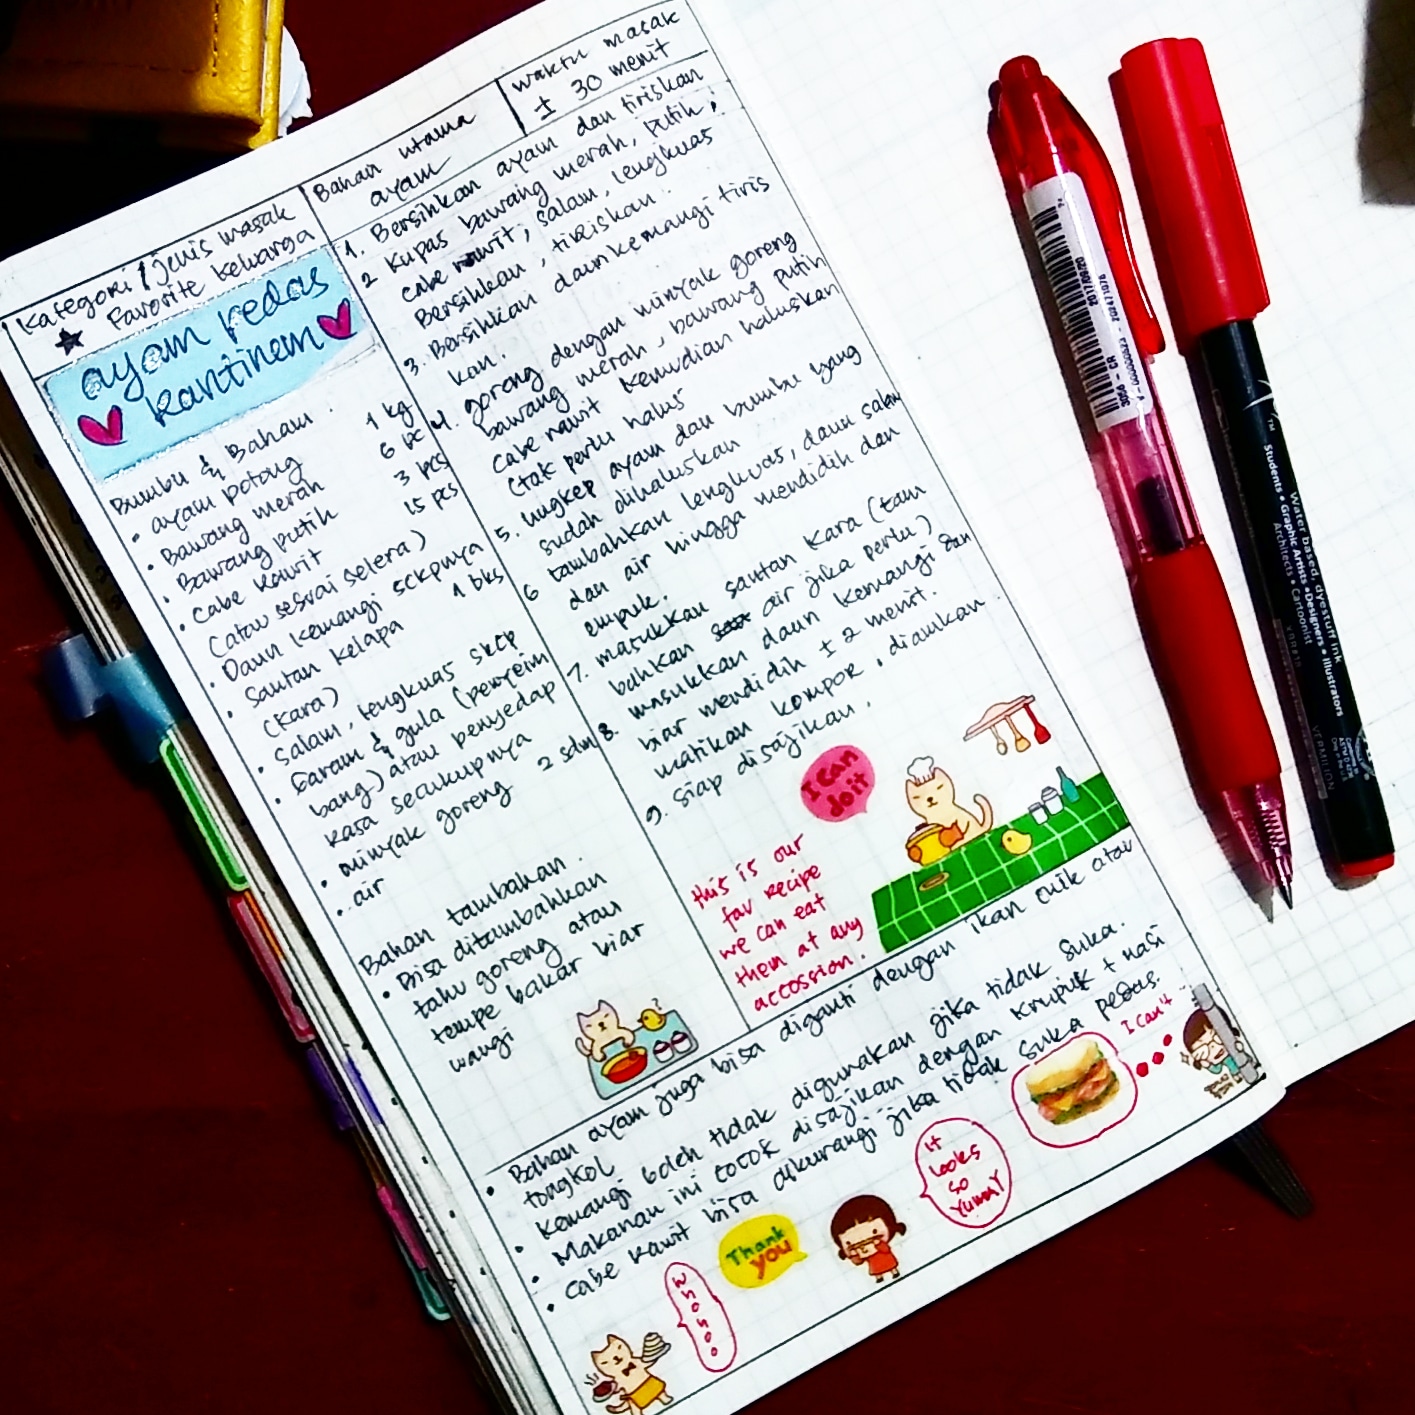 Kategori / Jenis masak
★ Favorite keluarga
Bahan utama
ayam
waktu masak
± 30 menit
ayam pedas
kantinem
Bumbu & Bahan :
• ayam potong 1 kg
• Bawang merah 6 pc
• Bawang putih 3 pcs
• cabe rawit 15 pcs
(atau sesuai selera)
• Daun kemangi sckpnya
• Santan kelapa 1 bks
(kara)
• Salam, lengkuas skcp
• Garam & gula (penyeim
bang) atau penyedap
rasa secukupnya
• minyak goreng 2 sdm
• air
Bahan tambahan :
• Bisa ditambahkan
tahu goreng atau
tempe bakar biar
wangi
1. Bersihkan ayam dan tiriskan
2 Kupas bawang merah, putih,
cabe rawit, salam, lengkuas
Bersihkan, tiriskan.
3. Bersihkan daun kemangi tiris
kan.
4. goreng dengan minyak goreng
bawang merah, bawang putih
cabe rawit kemudian haluskan
(tak perlu halus
5. ungkep ayam dan bumbu yang
sudah dihaluskan
6 tambahkan lengkuas, daun salam
dan air hingga mendidih dan
empuk.
7. masukkan santan kara (tam
bahkan air jika perlu)
8. masukkan daun kemangi dan
biar mendidih ± 2 menit.
matikan kompor, diamkan
9. siap disajikan.
I can
do it
this is our
fav recipe
we can eat
them at any
accossion.
• Bahan ayam juga bisa diganti dengan ikan cuik atau
tongkol
• Kemangi boleh tidak digunakan jika tidak suka.
• Makanan ini cocok disajikan dengan krupuk + nasi
• cabe rawit bisa dikurangi jika tidak suka pedas.
I can't
It
looks
so
yummy
Thank
you
whohoo
2017/09/20
3056 - CR
Water based dyestuff ink
Students • Graphic Artists • Designers • Illustrators
Architects • Cartoonist
VERMILION